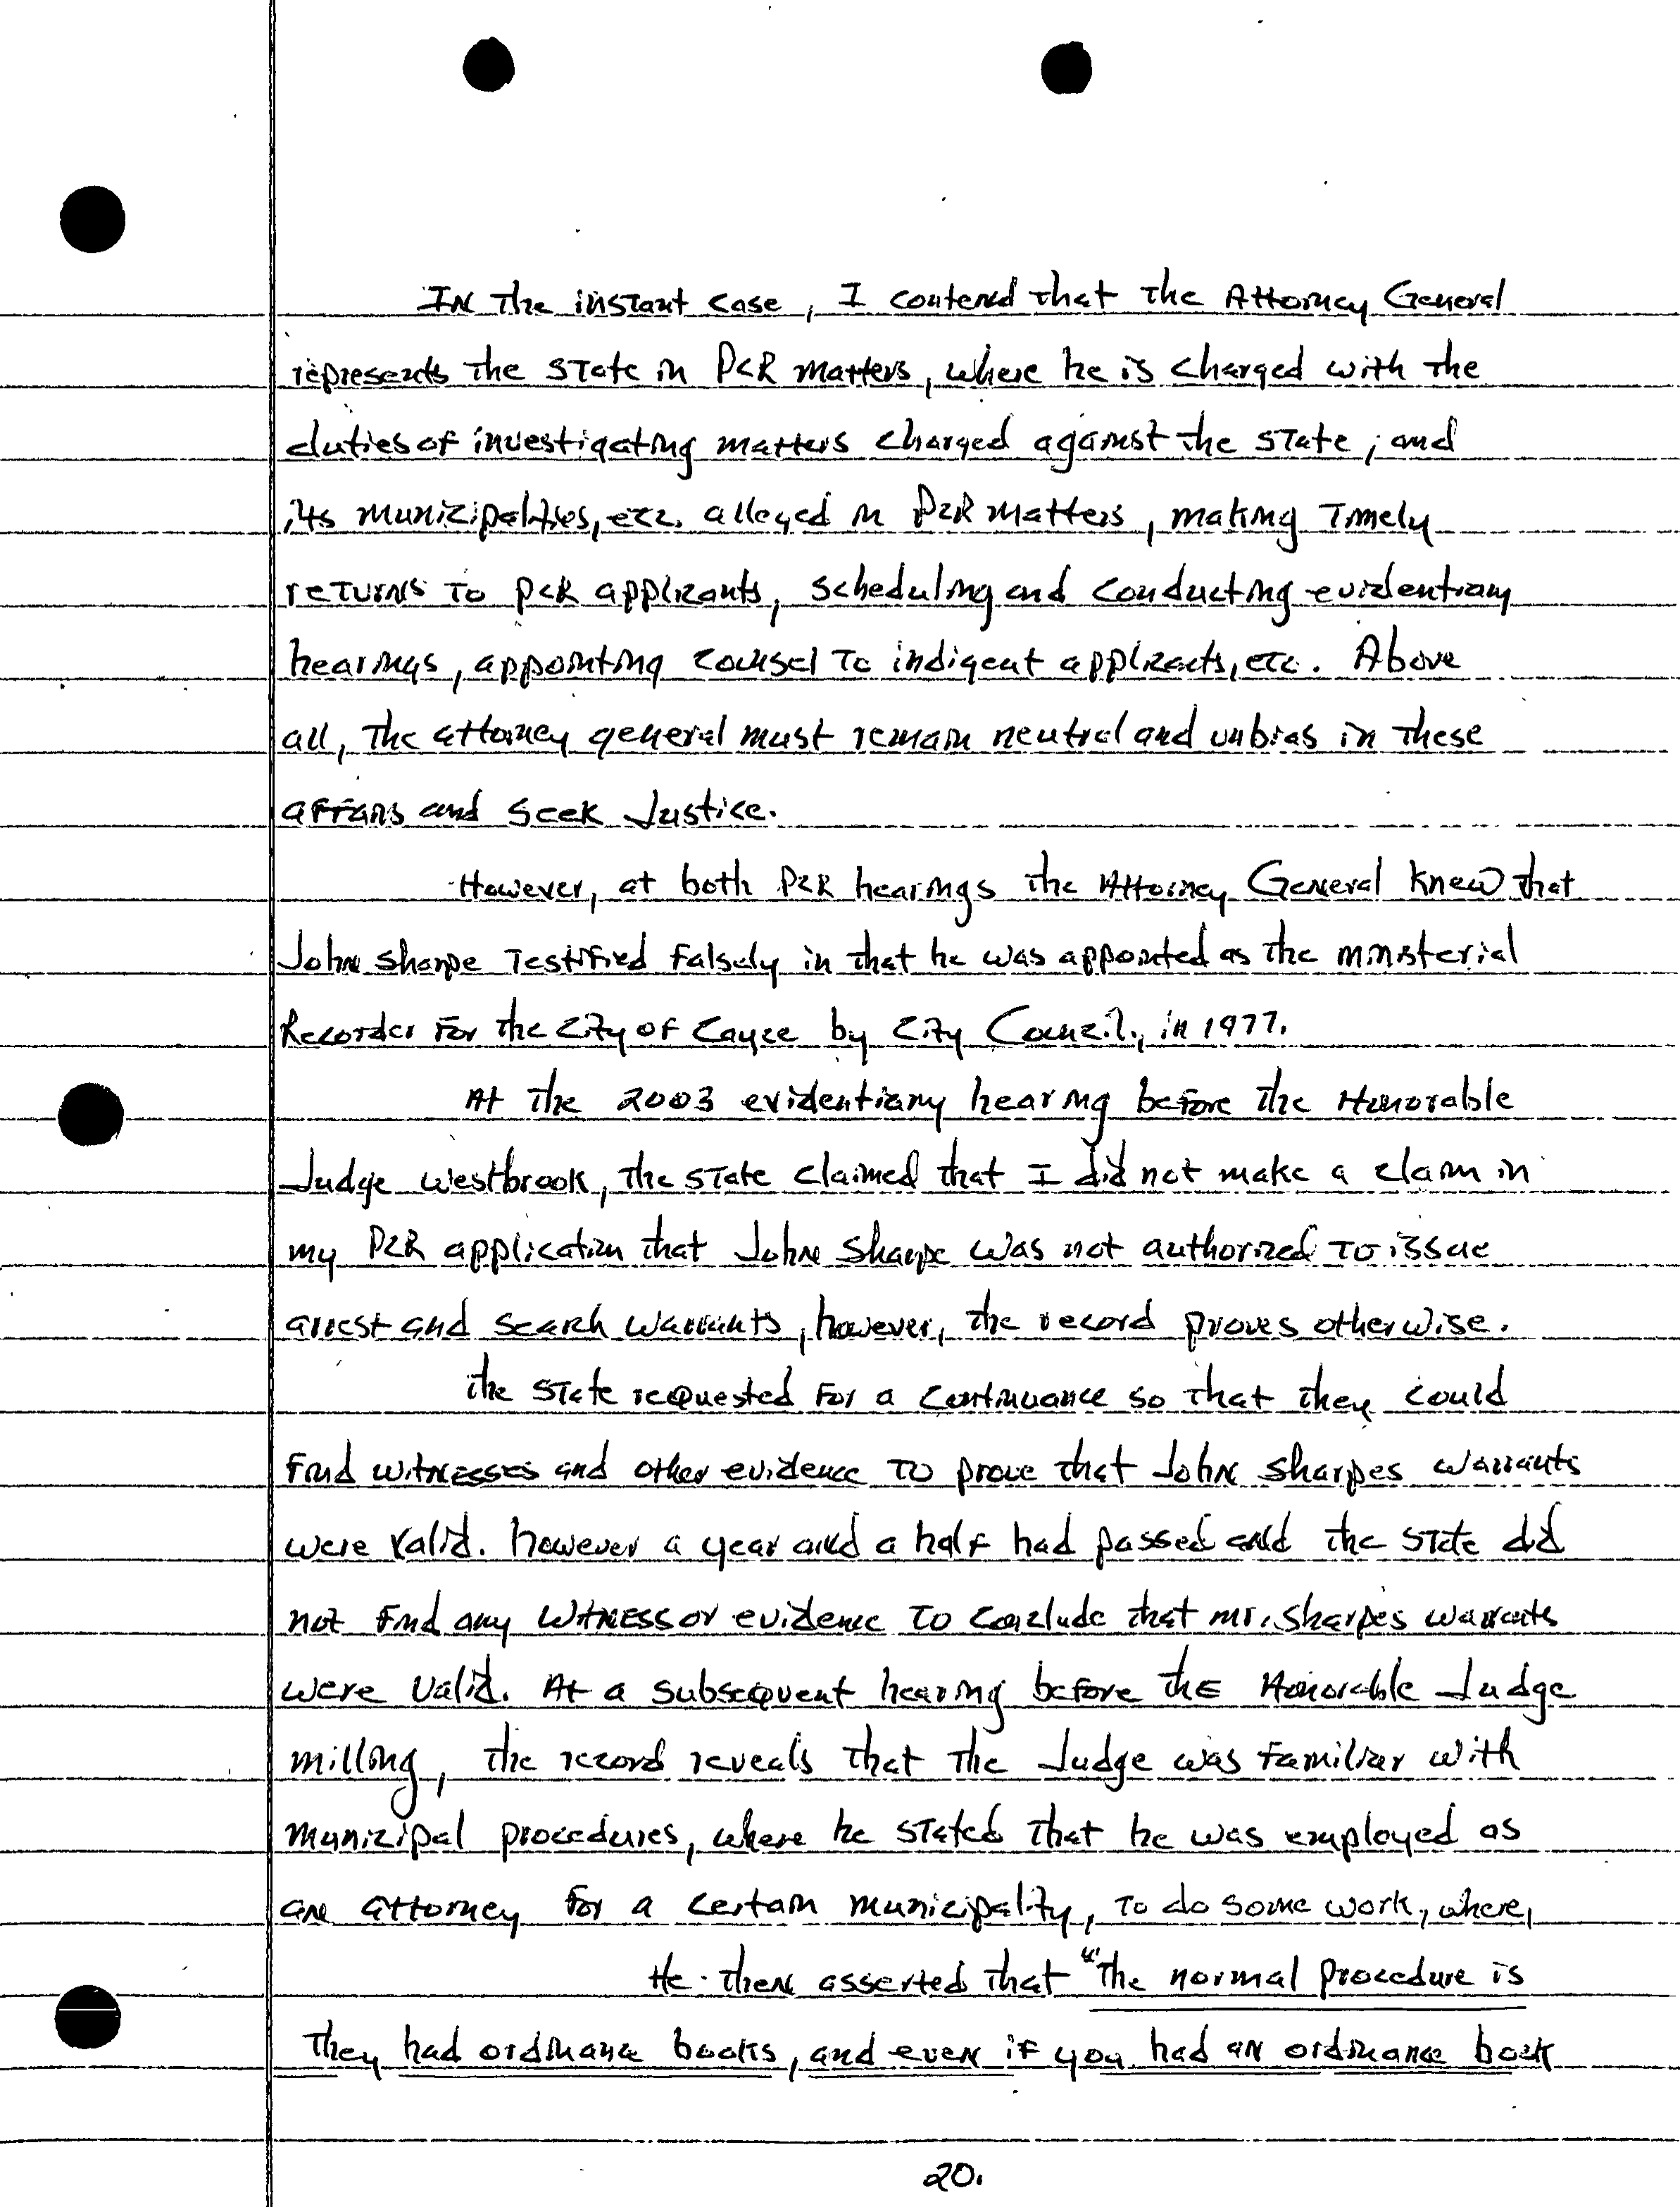 In the instant case, I contend that the Attorney General
represents the state in PCR matters, where he is charged with the
duties of investigating matters charged against the state, and
its municipalities, etc. alleged in PCR matters, making timely
returns to pcR applicants, scheduling and conducting evidentiary
hearings, appointing counsel to indigent applicants, etc. Above
all, the attorney general must remain neutral and unbias in these
affairs and seek Justice.
However, at both PCR hearings the Attorney General knew that
John Sharpe testified falsely in that he was appointed as the ministerial
Recorder for the City of Cayce by City Council, in 1977.
At the 2003 evidentiary hearing before the Honorable
Judge Westbrook, the state claimed that I did not make a claim in
my PCR application that John Sharpe was not authorized to issue
arrest and search warrants, however, the record proves otherwise.
The state requested for a continuance so that they could
find witnesses and other evidence to prove that John Sharpes warrants
were valid. however a year and a half had passed and the state did
not find any witness or evidence to conclude that mr. Sharpes warrants
were valid. At a subsequent hearing before the Honorable Judge
milling, the record reveals that the Judge was familiar with
municipal procedures, where he stated that he was employed as
an attorney for a certain municipality, to do some work, where,
He then asserted that "the normal procedure is
they had ordinance books, and even if you had an ordinance book
20.